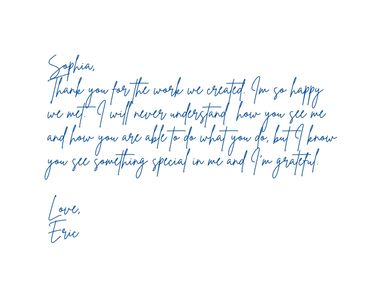 Sophia,
Thank you for the work we created. I'm so happy
we met. I will never understand how you see me
and how you are able to do what you do, but I know
you see something special in me and I'm grateful.
Love,
Eric